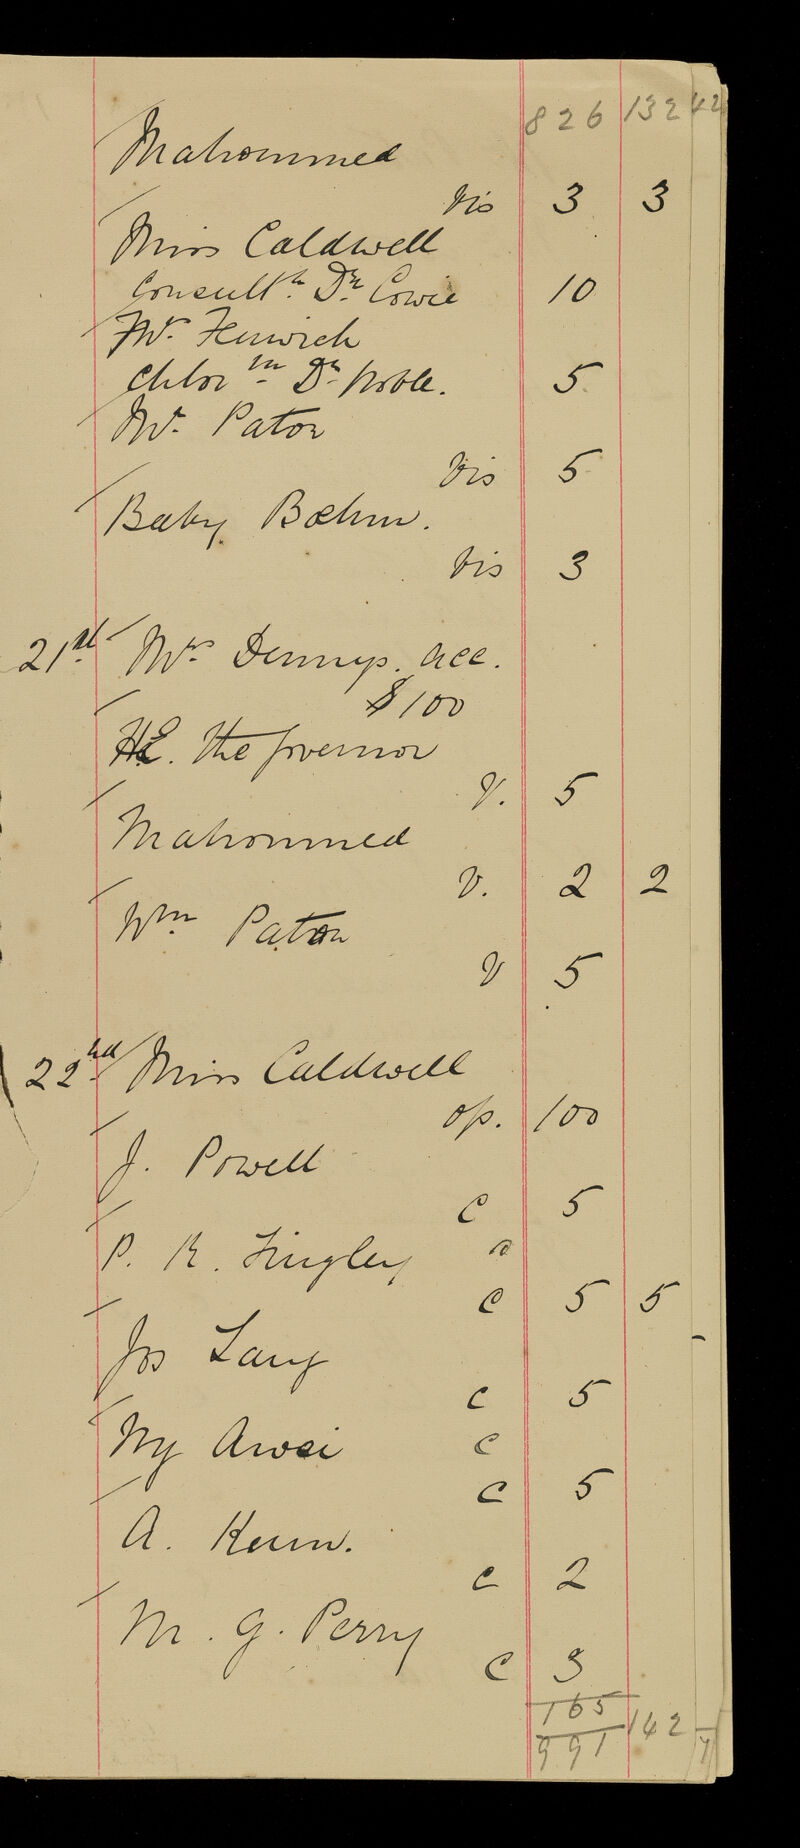 826 132 42
Mahommed
vis 3 3
Miss Caldwell
Consultn. Dr. Cowie 10
Mr. Fenwick
Chlorm. Dr. Noble. 5
Mr. Paton
vis 5
Baby Bœhm.
vis 3
21st Mr. Dennys. acc.
$100
HE. The Governor
V. 5
Mahommed
V. 2 2
Wm. Paton
V 5
22nd Miss Caldwell
op. 100
J. Powell
C 5
P. R. Tingley
C 5 5
Jos Lang
C 5
Ny Awoi C
C 5
A. Keun.
C 2
M. G. Perry
C 3
165
991 142